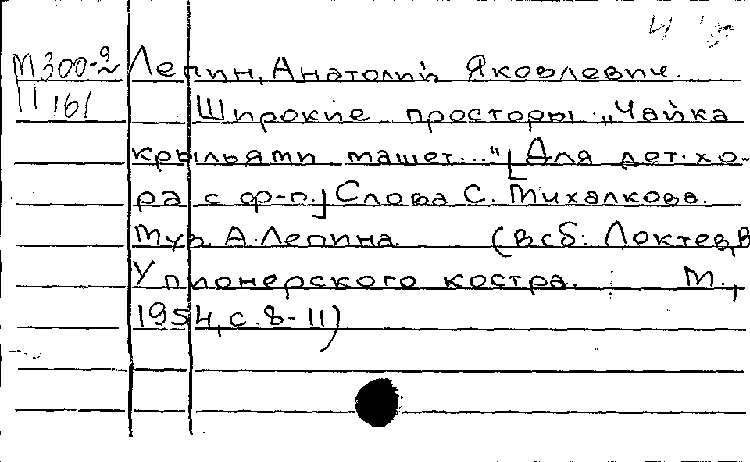 М300-2 Лепин, Анатолий Яковлевич.
П 161 Широкие просторы. „Чайка
крыльями машет..." [Для дет. хо-
ра с ф-п.] Слова С. Михалкова.
Муз. А. Лепина. (В сб: Локтев, В
У пионерского костра. М.,
1954, с. 8-11)